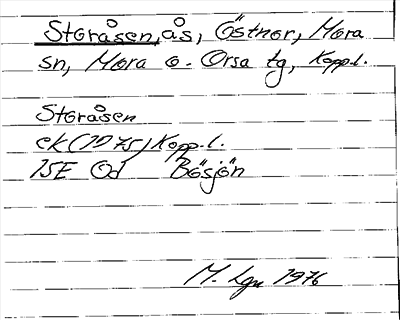 Storåsen, ås, Östnor, Mora
sn, Mora o. Orsa tg, Kopp.l.
Storåsen
ek (1975) Kopp.l.
15E Od Bösjön
M. Lgn 1976